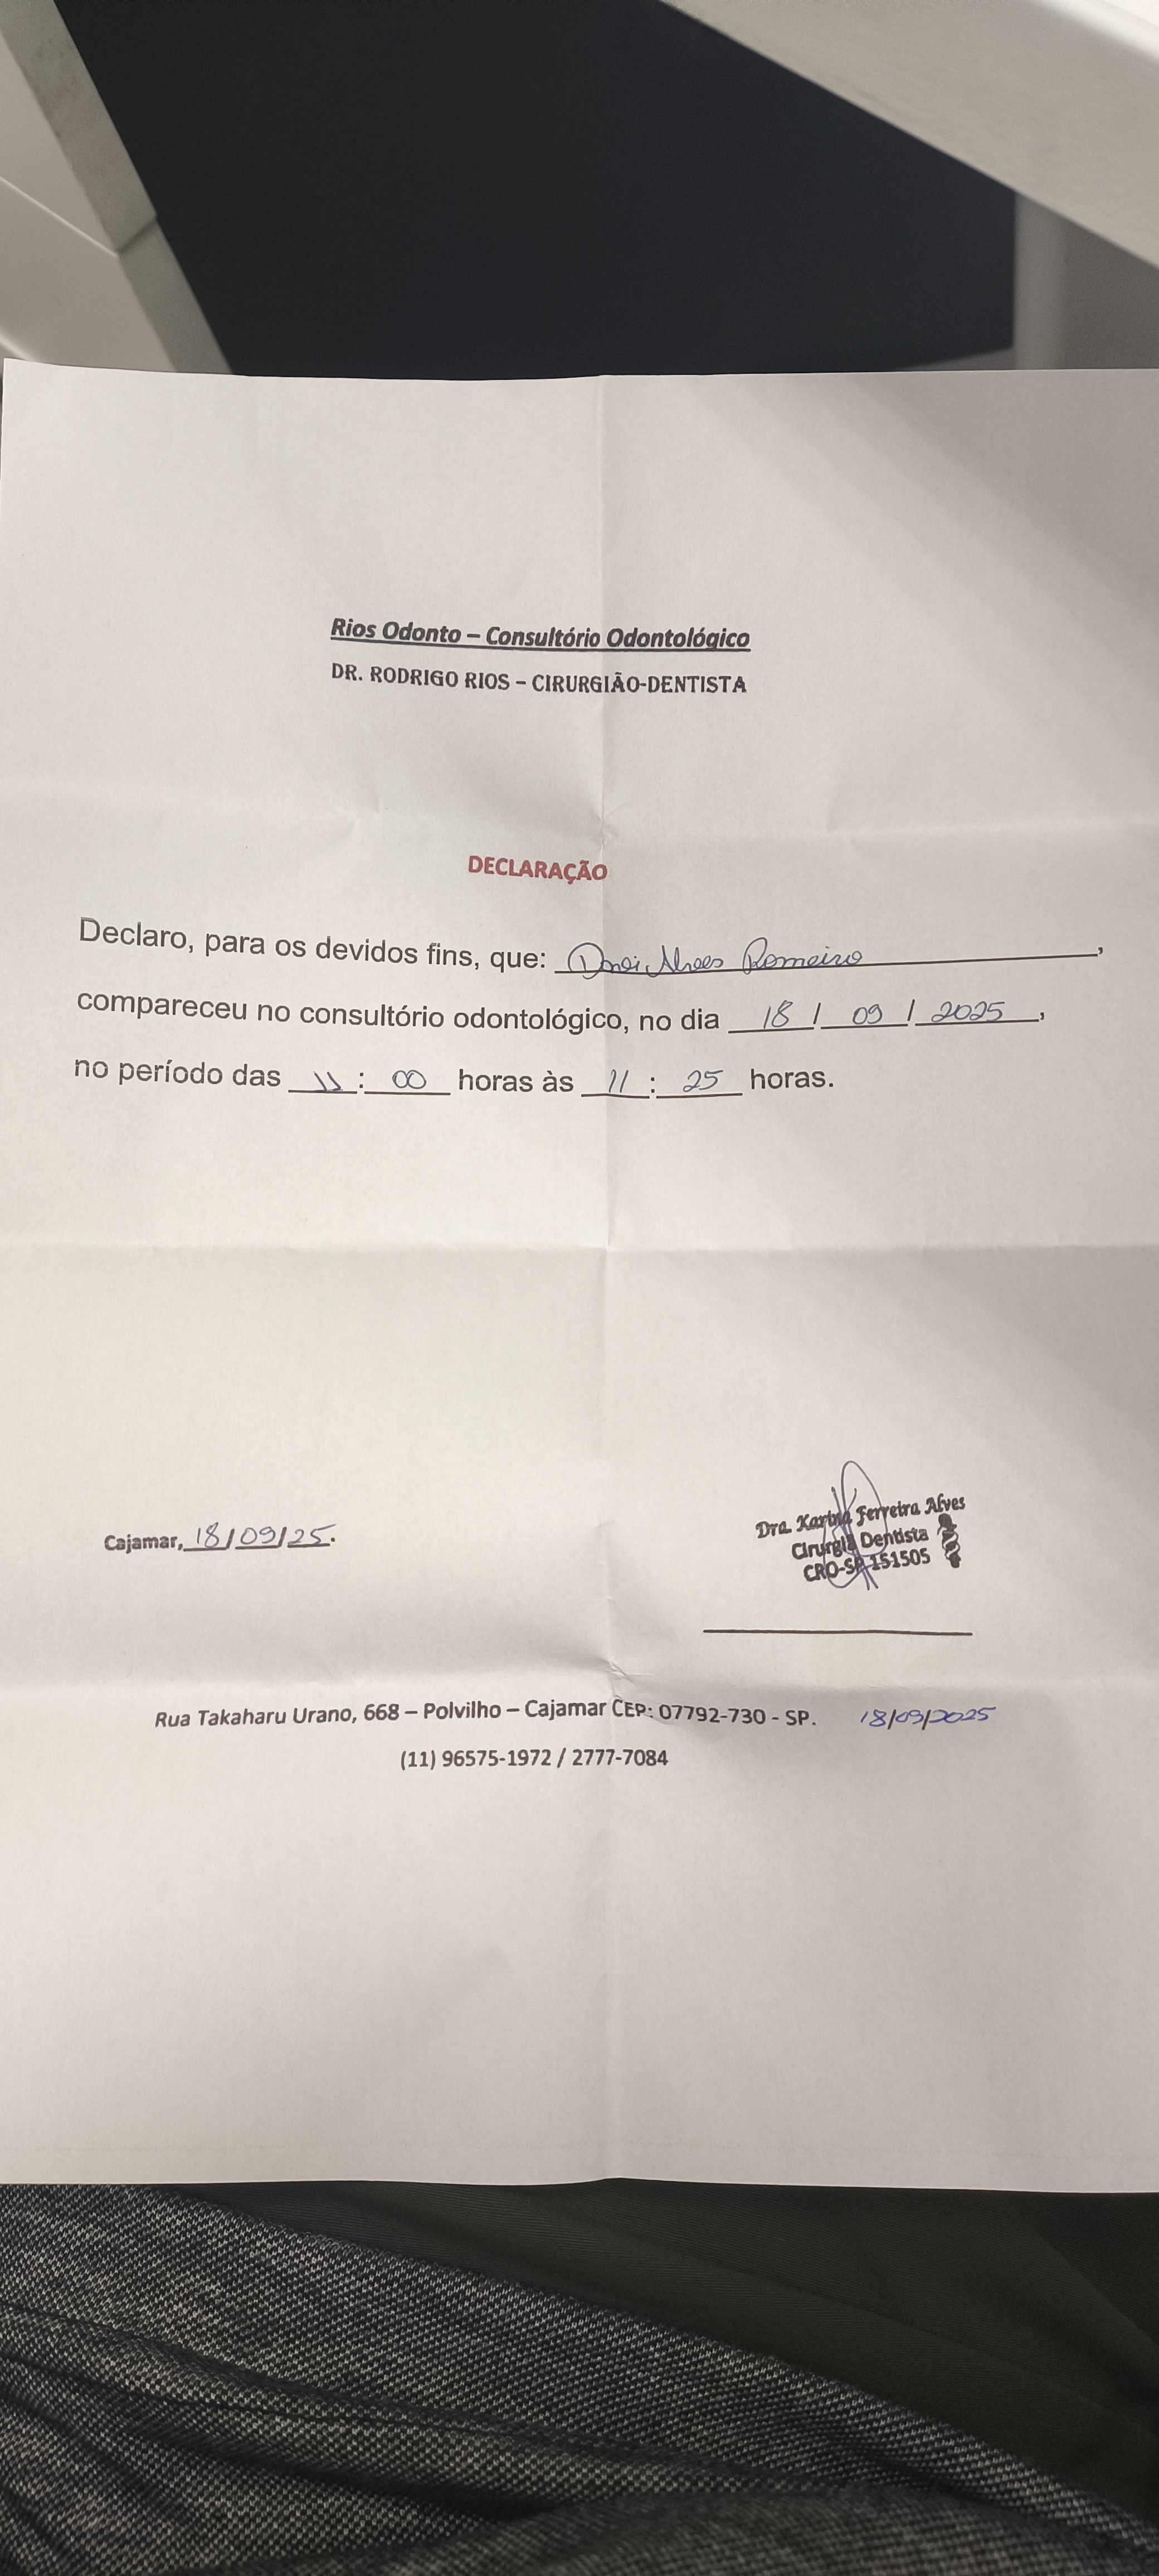 Rios Odonto – Consultório Odontológico
DR. RODRIGO RIOS – CIRURGIÃO-DENTISTA
DECLARAÇÃO
Declaro, para os devidos fins, que: Romeiro,
compareceu no consultório odontológico, no dia 18 / 09 / 2025,
no período das 11 : 00 horas às 11 : 25 horas.
Dra. Karina Ferreira Alves
Cirurgiã Dentista
CRO-SP 151505
Cajamar, 18/09/25.
Rua Takaharu Urano, 668 – Polvilho – Cajamar CEP: 07792-730 - SP. 18/09/2025
(11) 96575-1972 / 2777-7084